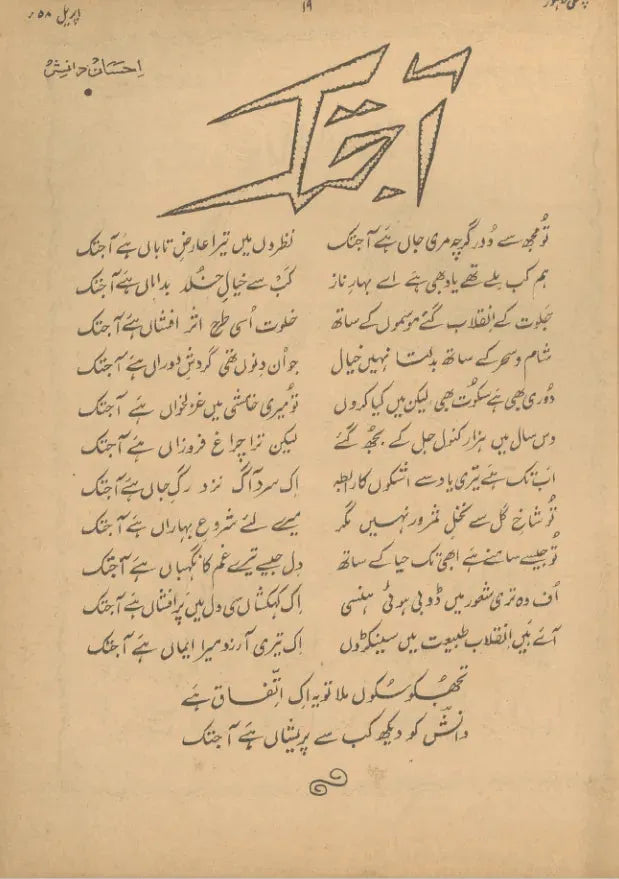 اپریل ۵۸ء
۱۹
لاہور
احسان دانش
آجتک
تُو مجھ سے دُور گرچہ مری جاں ہے آجتک نظروں میں تیرا عارضِ تاباں ہے آجتک
ہم کب ملے تھے یاد بھی ہے اے بہارِ ناز کب سے خیال خلد بداماں ہے آجتک
جلوت کے انقلاب گئے موسموں کے ساتھ خلوت اُسی طرح اثر افشاں ہے آجتک
شام و سحر کے ساتھ بدلتا نہیں خیال جو اُن دِنوں تھی گردشِ دوراں ہے آجتک
دُوری بھی ہے سکوت بھی لیکن میں کیا کروں تو میری خامشی میں غزلخواں ہے آجتک
دس سال میں ہزار کنول جل کے بجھ گئے لیکن ترا چراغ فروزاں ہے آجتک
اب تک ہے تیری یاد سے اشکوں کا رابطہ اِک سرد آگ نزد رگِ جاں ہے آجتک
تُو شاخِ گل سے نخلِ ثمرور نہیں مگر میرے لئے شروعِ بہاراں ہے آجتک
تُو جیسے سامنے ہے ابھی تک حیا کے ساتھ دِل جیسے تیرے غم کا نگہباں ہے آجتک
اُف وہ تری شعور میں ڈوبی ہوئی ہنسی اِک کہکشاں سی دل میں پَرافشاں ہے آجتک
آئے ہیں اِنقلاب طبیعت میں سینکڑوں اِک تیری آرزو میرا ایماں ہے آجتک
تجھکو سُکوں ملا تو یہ اِک اتّفاق ہے
دانشؔ کو دیکھ کب سے پریشاں ہے آجتک